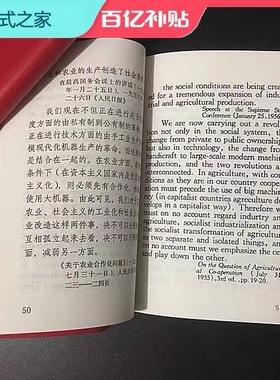 式之家
百亿补贴
和农业的生产创造了社会条
在最高国务会议上的讲话
年一月二十五日），一九五
二十六日《人民日报》
我们现在不但正在进行关于
度方面的由私有制到公有制的革
正在进行技术方面的由手工业生产
模现代化机器生产的革命，而这
是结合在一起的。在农业方面，
国的条件之下（在资本主义国家内
本主义化），则必须先有合作化，
使用大机器。由此可见，我们对于
农业、社会主义的工业化和社会主
业改造这样的两件事，决不可以
互相孤立起来去看，决不可以只
面，减弱另一方面。
《关于农业合作化问题》（一九
七月三十一日），人民出版
二三——二四页
50
the social conditions are being created
for a tremendous expansion of industrial
and agricultural production.
Speech at the Supreme State
Conference (January 25, 1956
We are now carrying out a revolution
not only in the social system, the
change from private to public ownership,
but also in technology, the change from
handicraft to large-scale modern machine
production, and the two revolutions are
interconnected. In agriculture, with
conditions as they are in our country co-operation
must precede the use of big machinery
(in capitalist countries agriculture develops
in a capitalist way). Therefore we
must on no account regard industry and
agriculture, socialist industrialization and
the socialist transformation of agriculture
as two separate and isolated things, and
on no account must we emphasize
and play down the other.
On the Question of Agricultural
Co-operation (July 31
1955), 3rd ed., pp. 19-20.
5